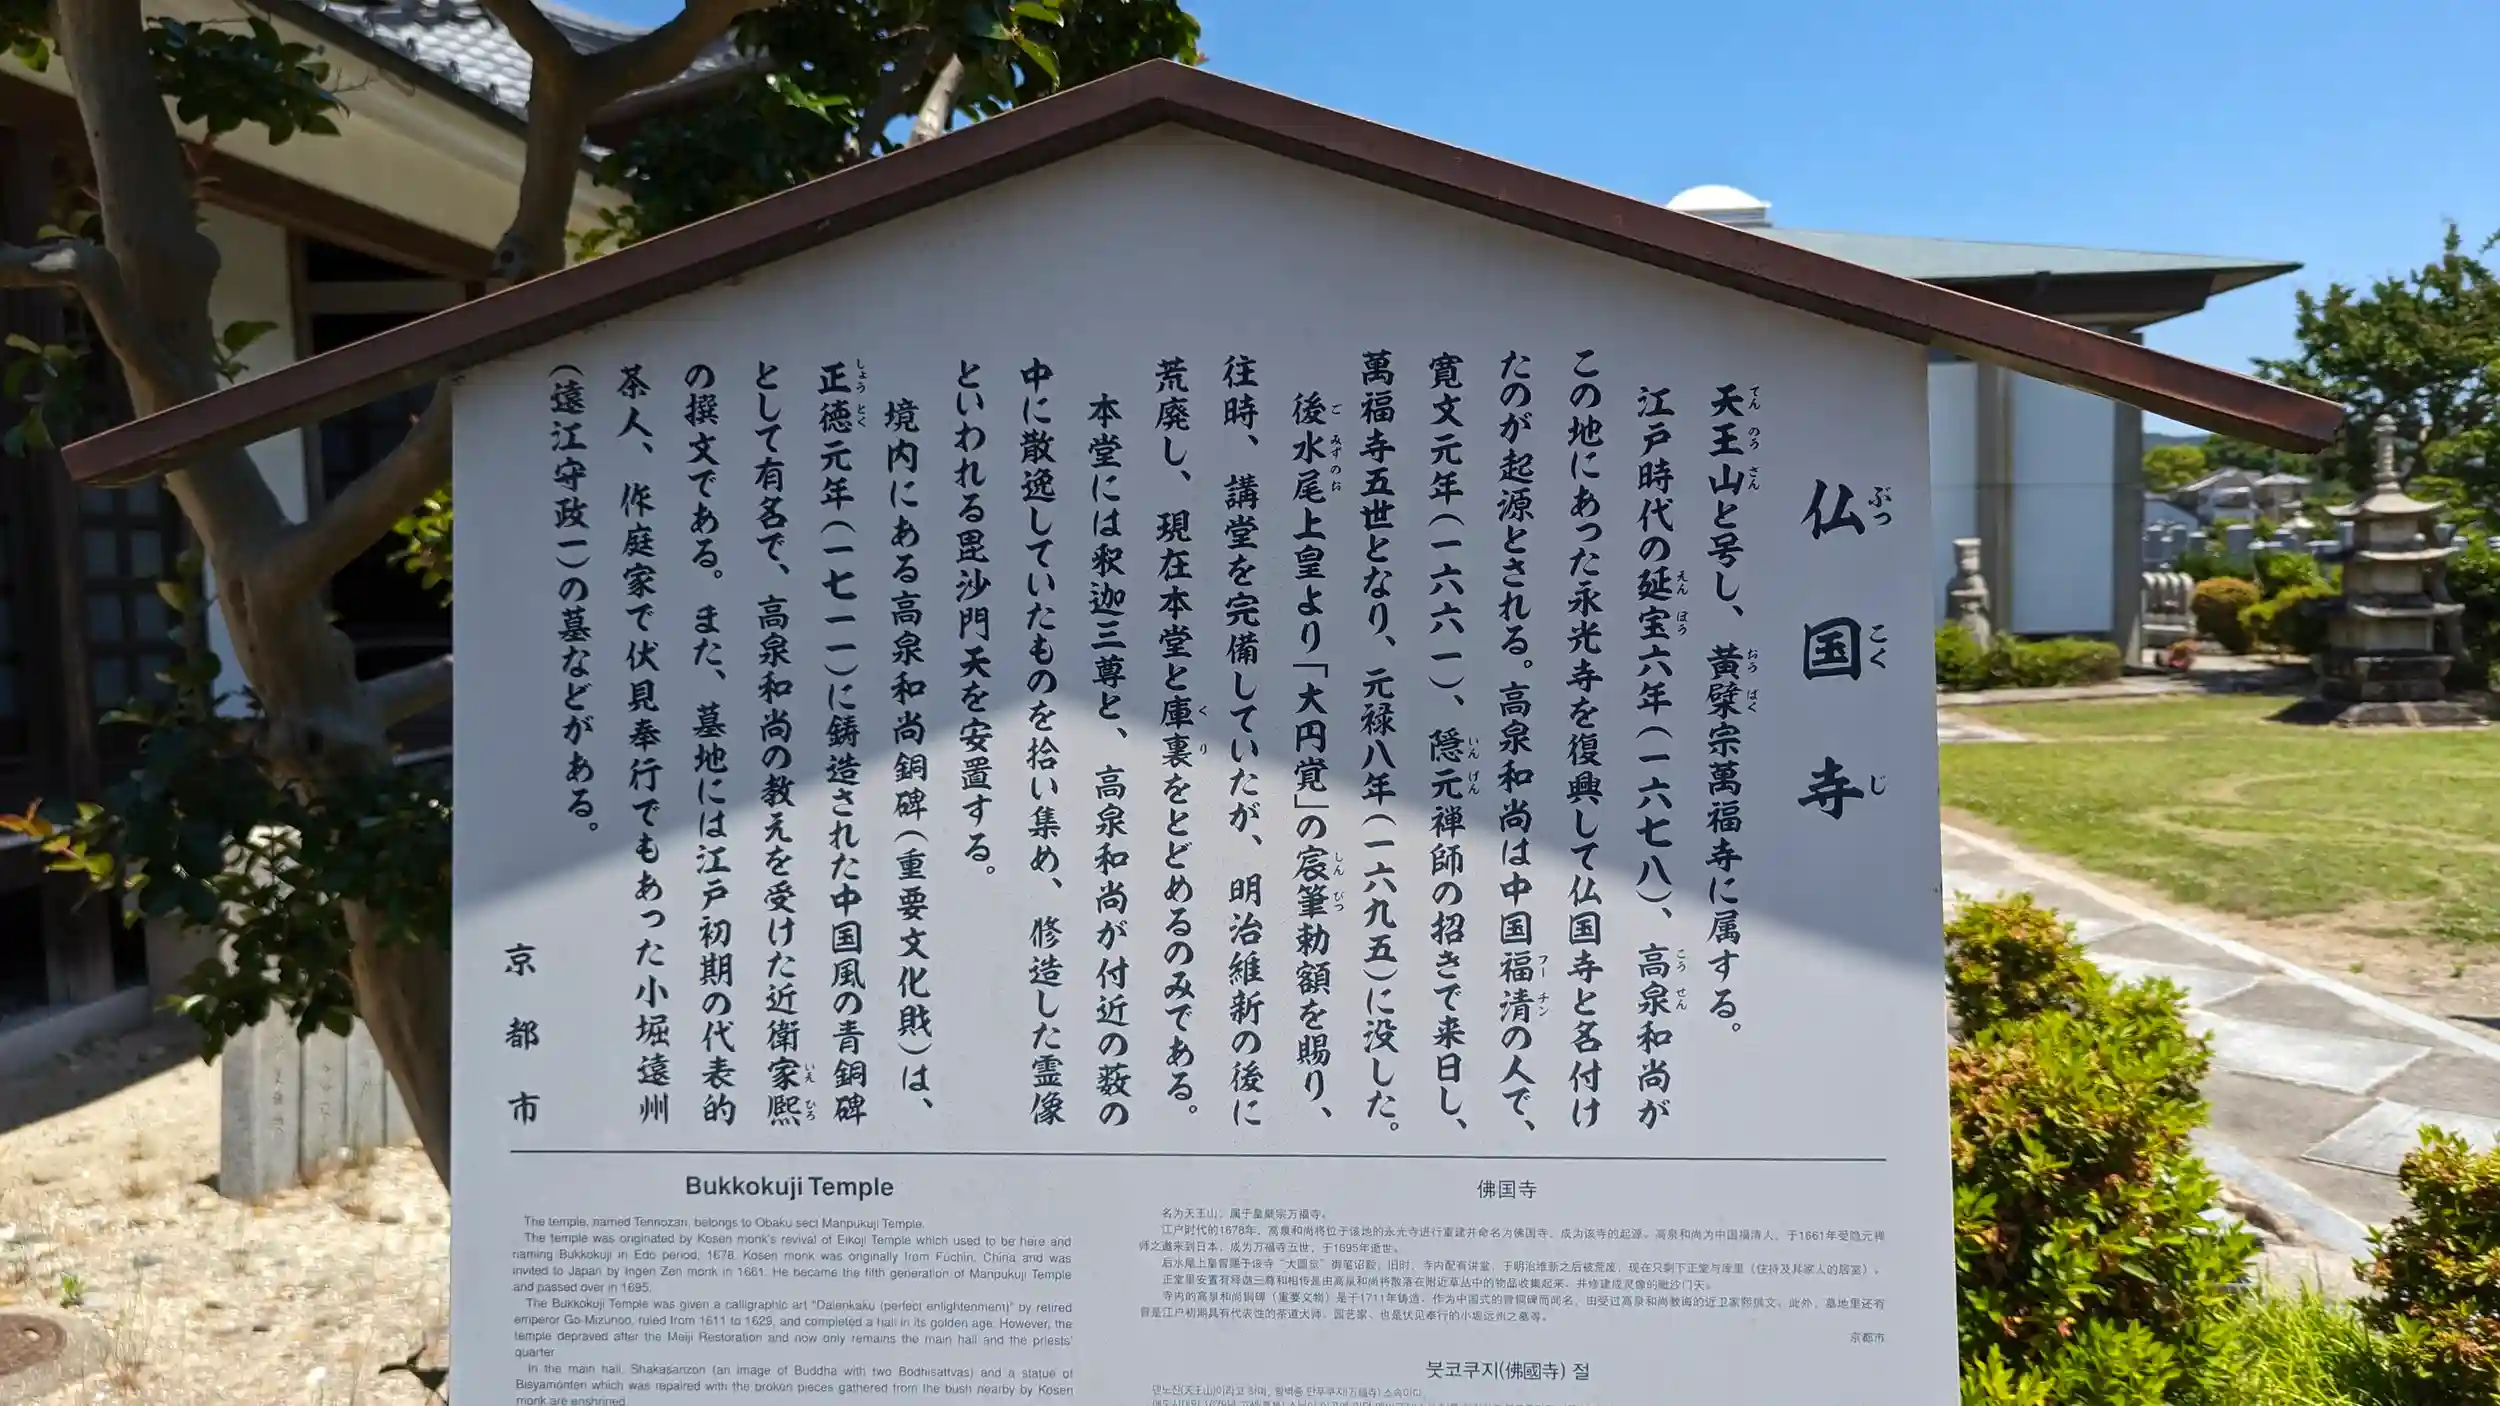 仏国寺
ぶっこくじ
天王山と号し、黄檗宗萬福寺に属する。
てんのうざん
おうばく
江戸時代の延宝六年(一六七八)、高泉和尚が
えんぽう
こうせん
この地にあった永光寺を復興して仏国寺と名付け
たのが起源とされる。高泉和尚は中国福清の人で、
フーチン
寛文元年(一六六一)、隠元禅師の招きで来日し、
いんげん
萬福寺五世となり、元禄八年(一六九五)に没した。
後水尾上皇より「大円覚」の宸筆勅額を賜り、
ごみずのお
しんぴつ
往時、講堂を完備していたが、明治維新の後に
荒廃し、現在本堂と庫裏をとどめるのみである。
くり
本堂には釈迦三尊と、高泉和尚が付近の薮の
中に散逸していたものを拾い集め、修造した霊像
といわれる毘沙門天を安置する。
境内にある高泉和尚銅碑(重要文化財)は、
正徳元年(一七一一)に鋳造された中国風の青銅碑
しょうとく
として有名で、高泉和尚の教えを受けた近衛家熙
いえひろ
の撰文である。また、墓地には江戸初期の代表的
茶人、作庭家で伏見奉行でもあった小堀遠州
(遠江守政一)の墓などがある。
京都市
Bukkokuji Temple
The temple, named Tennozan, belongs to Obaku sect Manpukuji Temple.
The temple was originated by Kosen monk's revival of Eikoji Temple which used to be here and
naming Bukkokuji in Edo period, 1678. Kosen monk was originally from Fuchin, China and was
invited to Japan by Ingen Zen monk in 1661. He became the fifth generation of Manpukuji Temple
and passed over in 1695.
The Bukkokuji Temple was given a calligraphic art "Daienkaku (perfect enlightenment)" by retired
emperor Go-Mizunoo, ruled from 1611 to 1629, and completed a hall in its golden age. However, the
temple depraved after the Meiji Restoration and now only remains the main hall and the priests'
quarter.
In the main hall, Shakasanzon (an image of Buddha with two Bodhisattvas) and a statue of
Bisyamonten which was repaired with the broken pieces gathered from the bush nearby by Kosen
monk are enshrined.
佛国寺
名为天王山，属于皇檗宗万福寺。
江户时代的1678年，高泉和尚将位于该地的永光寺进行重建并命名为佛国寺，成为该寺的起源。高泉和尚为中国福清人，于1661年受隐元禅
师之邀来到日本，成为万福寺五世，于1695年逝世。
后水尾上皇赐于该寺“大圆觉”御笔诏毅，旧时，寺内配有讲堂，于明治维新之后被荒废，现在只剩下正堂与库里（住持及其家人的居室）。
正堂里安置有释迦三尊和相传是由高泉和尚将散落在附近草丛中的物品收集起来，并修建成灵像的毗沙门天。
寺内的高泉和尚铜碑（重要文物）是于1711年铸造，作为中国式的青铜碑而闻名，由受过高泉和尚教诲的近卫家熙撰文。此外，墓地里还有
曾是江户初期具有代表性的茶道大师、园艺家、也是伏见奉行的小堀远州之墓等。
京都市
붓코쿠지(佛國寺) 절
덴노잔(天王山)이라고 하며, 황벽종 만푸쿠지(万福寺) 소속이다.